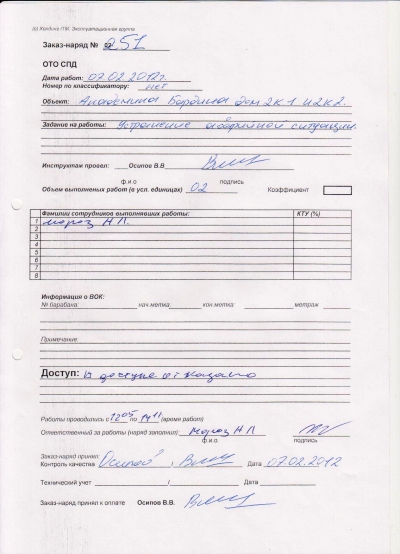 (с) Холдинг ПМ. Эксплуатационная группа
Заказ-наряд № 251
ОТО СПД
Дата работ: 07.02.2012г.
Номер по классификатору: нет
Объект: Академика Бардина дом 2К1 и 2К2.
Задание на работы: Устранение аварийной ситуации.
Инструктаж провел: Осипов В.В
ф.и.о подпись
Объем выполненых работ (в усл. единицах) 02 Коэффициент
Фамилии сотрудников выполнявших работы: КТУ (%)
1 Мороз Н Л.
2
3
4
5
6
7
8
Информация о ВОК:
№ барабана: нач.метка: кон.метка: метраж
Примечание:
Доступ: В доступе отказано
Работы проводились с 12 05 по (время работ)
Ответственный за работы (наряд заполнил): Мороз Н Л
ф.и.о подпись
Заказ-наряд принял:
Контроль качества Осипов / Дата 07.02.2012
Технический учет / Дата
Заказ-наряд принял к оплате Осипов В.В.